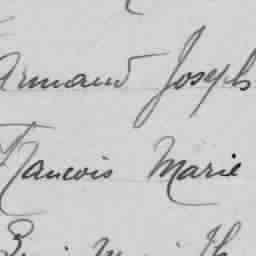 Armand Joseph
Francois Marie